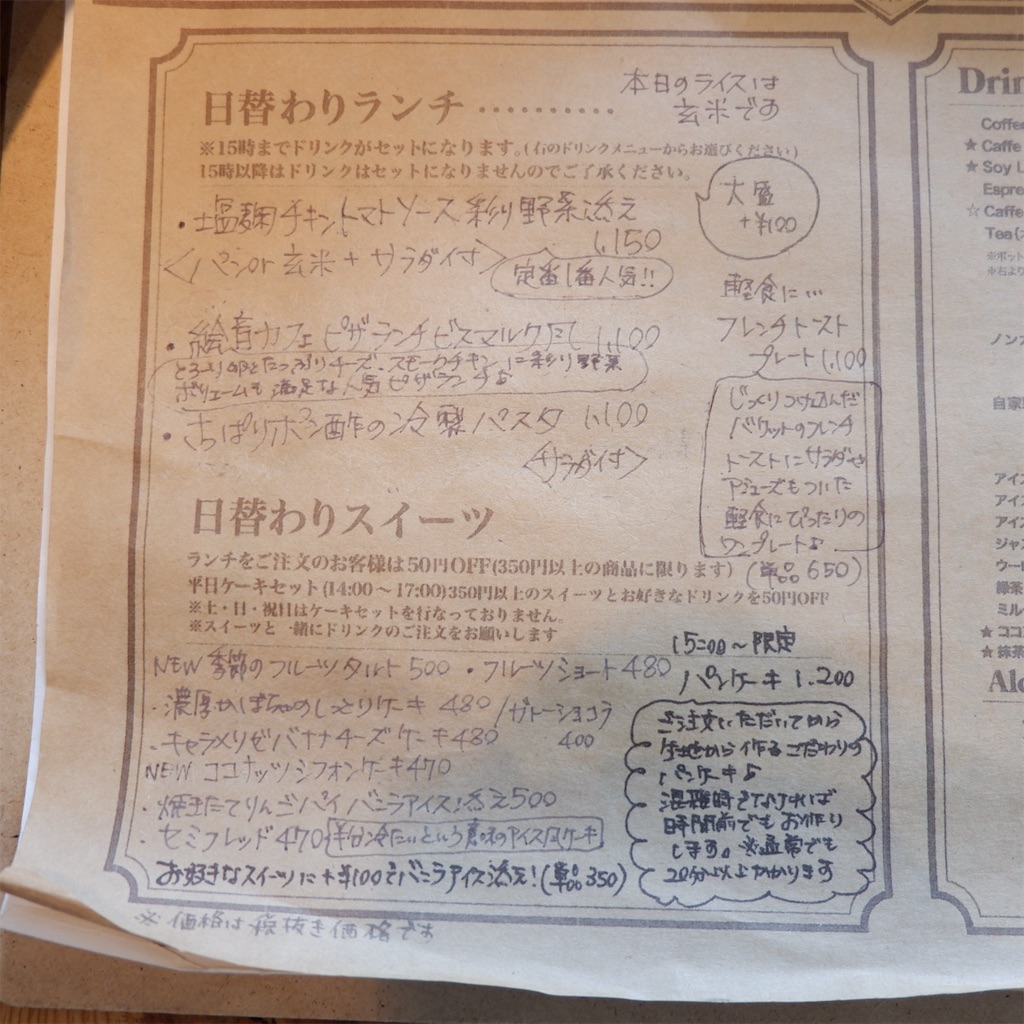 日替わりランチ ・・・・・・・・・・
本日のライスは
玄米です
※15時までドリンクがセットになります。(右のドリンクメニューからお選びください)
15時以降はドリンクはセットになりませんのでご了承ください。
大盛
+¥100
・塩麹チキントマトソース彩り野菜添え
1,150
<パンor玄米+サラダ付>
定番1番人気!!
・絵音カフェピザランチビスマルク風 1,100
とろーり卵とたっぷりチーズ、スモークチキンに彩り野菜
ボリュームも満足な人気ピザランチ♪
・さっぱりポン酢の冷製パスタ 1,100
<サラダ付>
軽食に…
フレンチトースト
プレート1,100
じっくりつけ込んだ
バケットのフレンチ
トーストにサラダや
アジューズもついた
軽食にぴったりの
ワンプレート♪
(単品650)
日替わりスイーツ
ランチをご注文のお客様は50円OFF(350円以上の商品に限ります)
平日ケーキセット(14:00~17:00)350円以上のスイーツとお好きなドリンクを50円OFF
※土・日・祝日はケーキセットを行なっておりません。
※スイーツと一緒にドリンクのご注文をお願いします
NEW 季節のフルーツタルト 500 ・フルーツショート 480
・濃厚かぼちゃのしっとりケーキ 480 /ガトーショコラ
400
・キャラメリゼバナナチーズケーキ480
NEW ココナッツシフォンケーキ470
・焼きたてりんごパイ バニラアイス添え500
・セミフレッド 470 半分冷たいという意味のアイス風ケーキ
お好きなスイーツに+¥100でバニラアイス添え!(単品350)
15:00~限定
パンケーキ 1,200
ご注文いただいてから
生地から作るこだわりの
パンケーキ♪
混雑時でなければ
時間前でもお作り
します。※通常でも
20分以上かかります
※価格は税抜き価格です
Drin
Coffee
★Caffe
★Soy L
Espre
☆Caffe
Tea(
※ポット
※右より
ノン
自家
アイ
アイ
アイ
ジャ
ウー
緑茶
ミル
★ココ
★抹茶
Alc